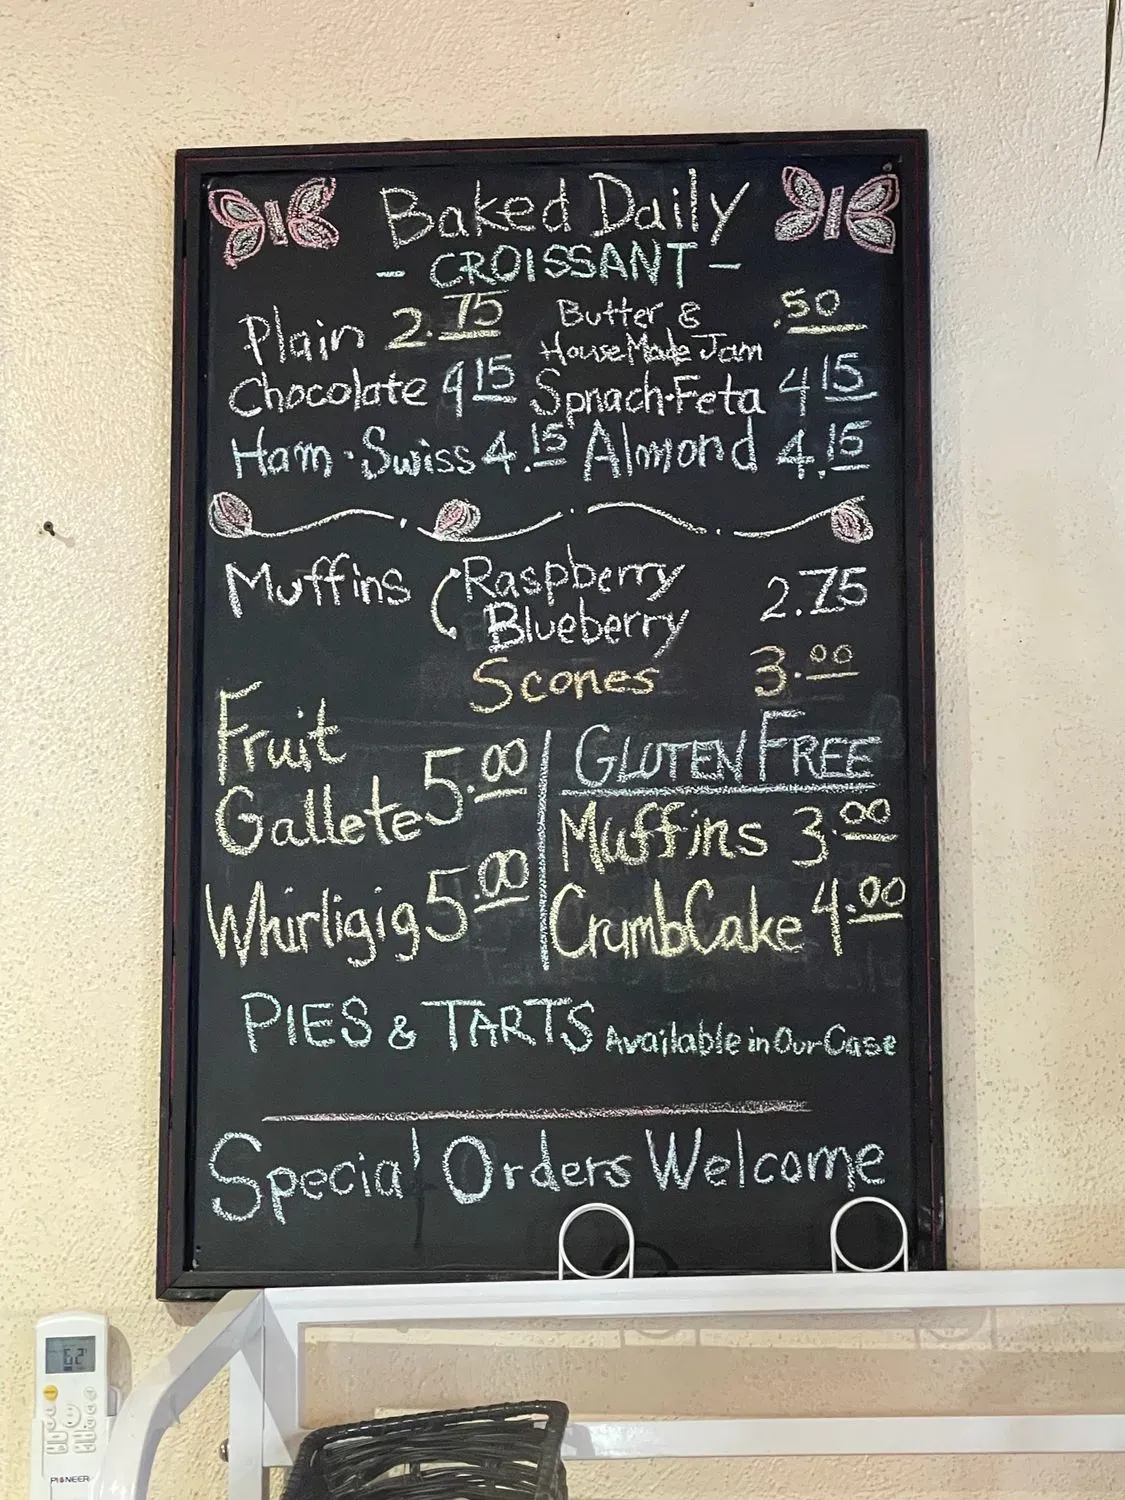 Baked Daily
- CROISSANT -
Plain 2.75 Butter & HouseMade Jam .50
Chocolate 4 15 Spnach·Feta 4 15
Ham·Swiss 4.15 Almond 4.15
Muffins Raspberry 2.75
Blueberry
Scones 3.00
Fruit
Gallete 5.00
Whirligig 5.00
GLUTEN FREE
Muffins 3.00
CrumbCake 4.00
PIES & TARTS Available in Our Case
Special Orders Welcome
62°
PIONEER